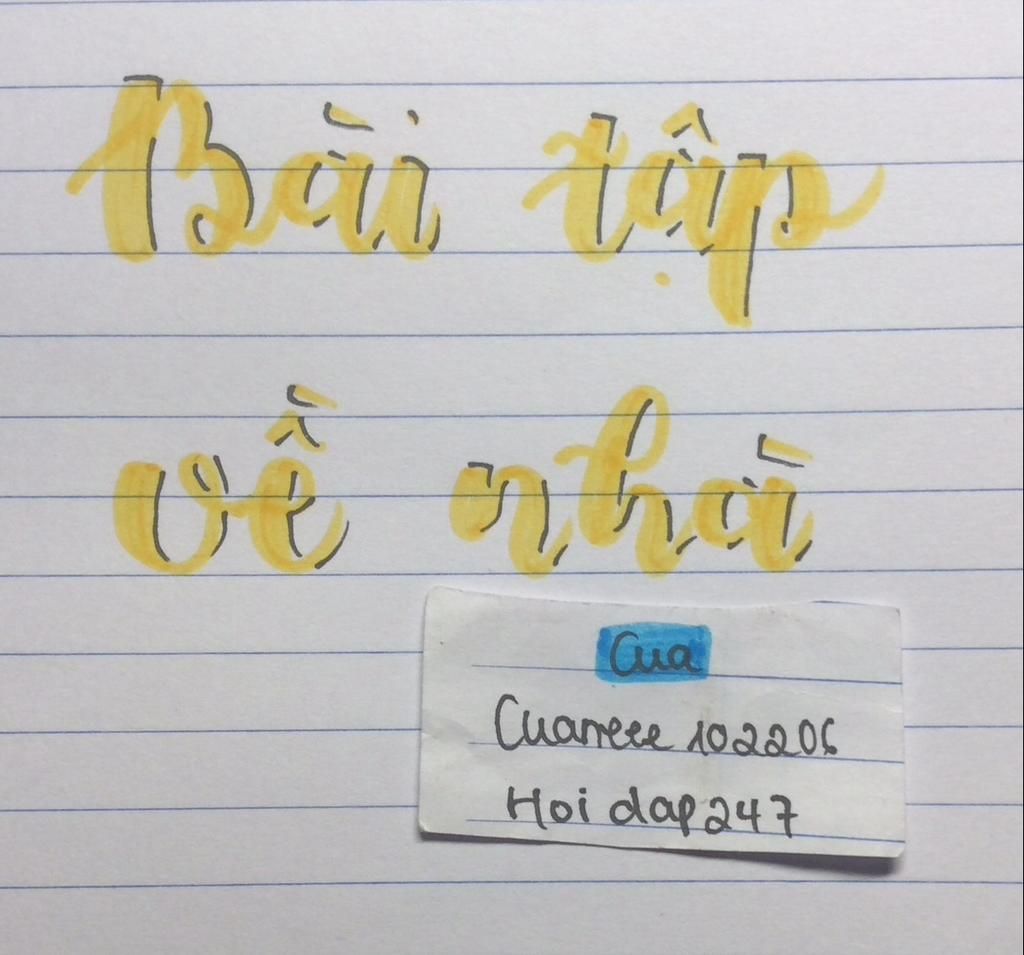 Bài tập
về nhà
Cua
Cuaneee 102206
Hoi dap247